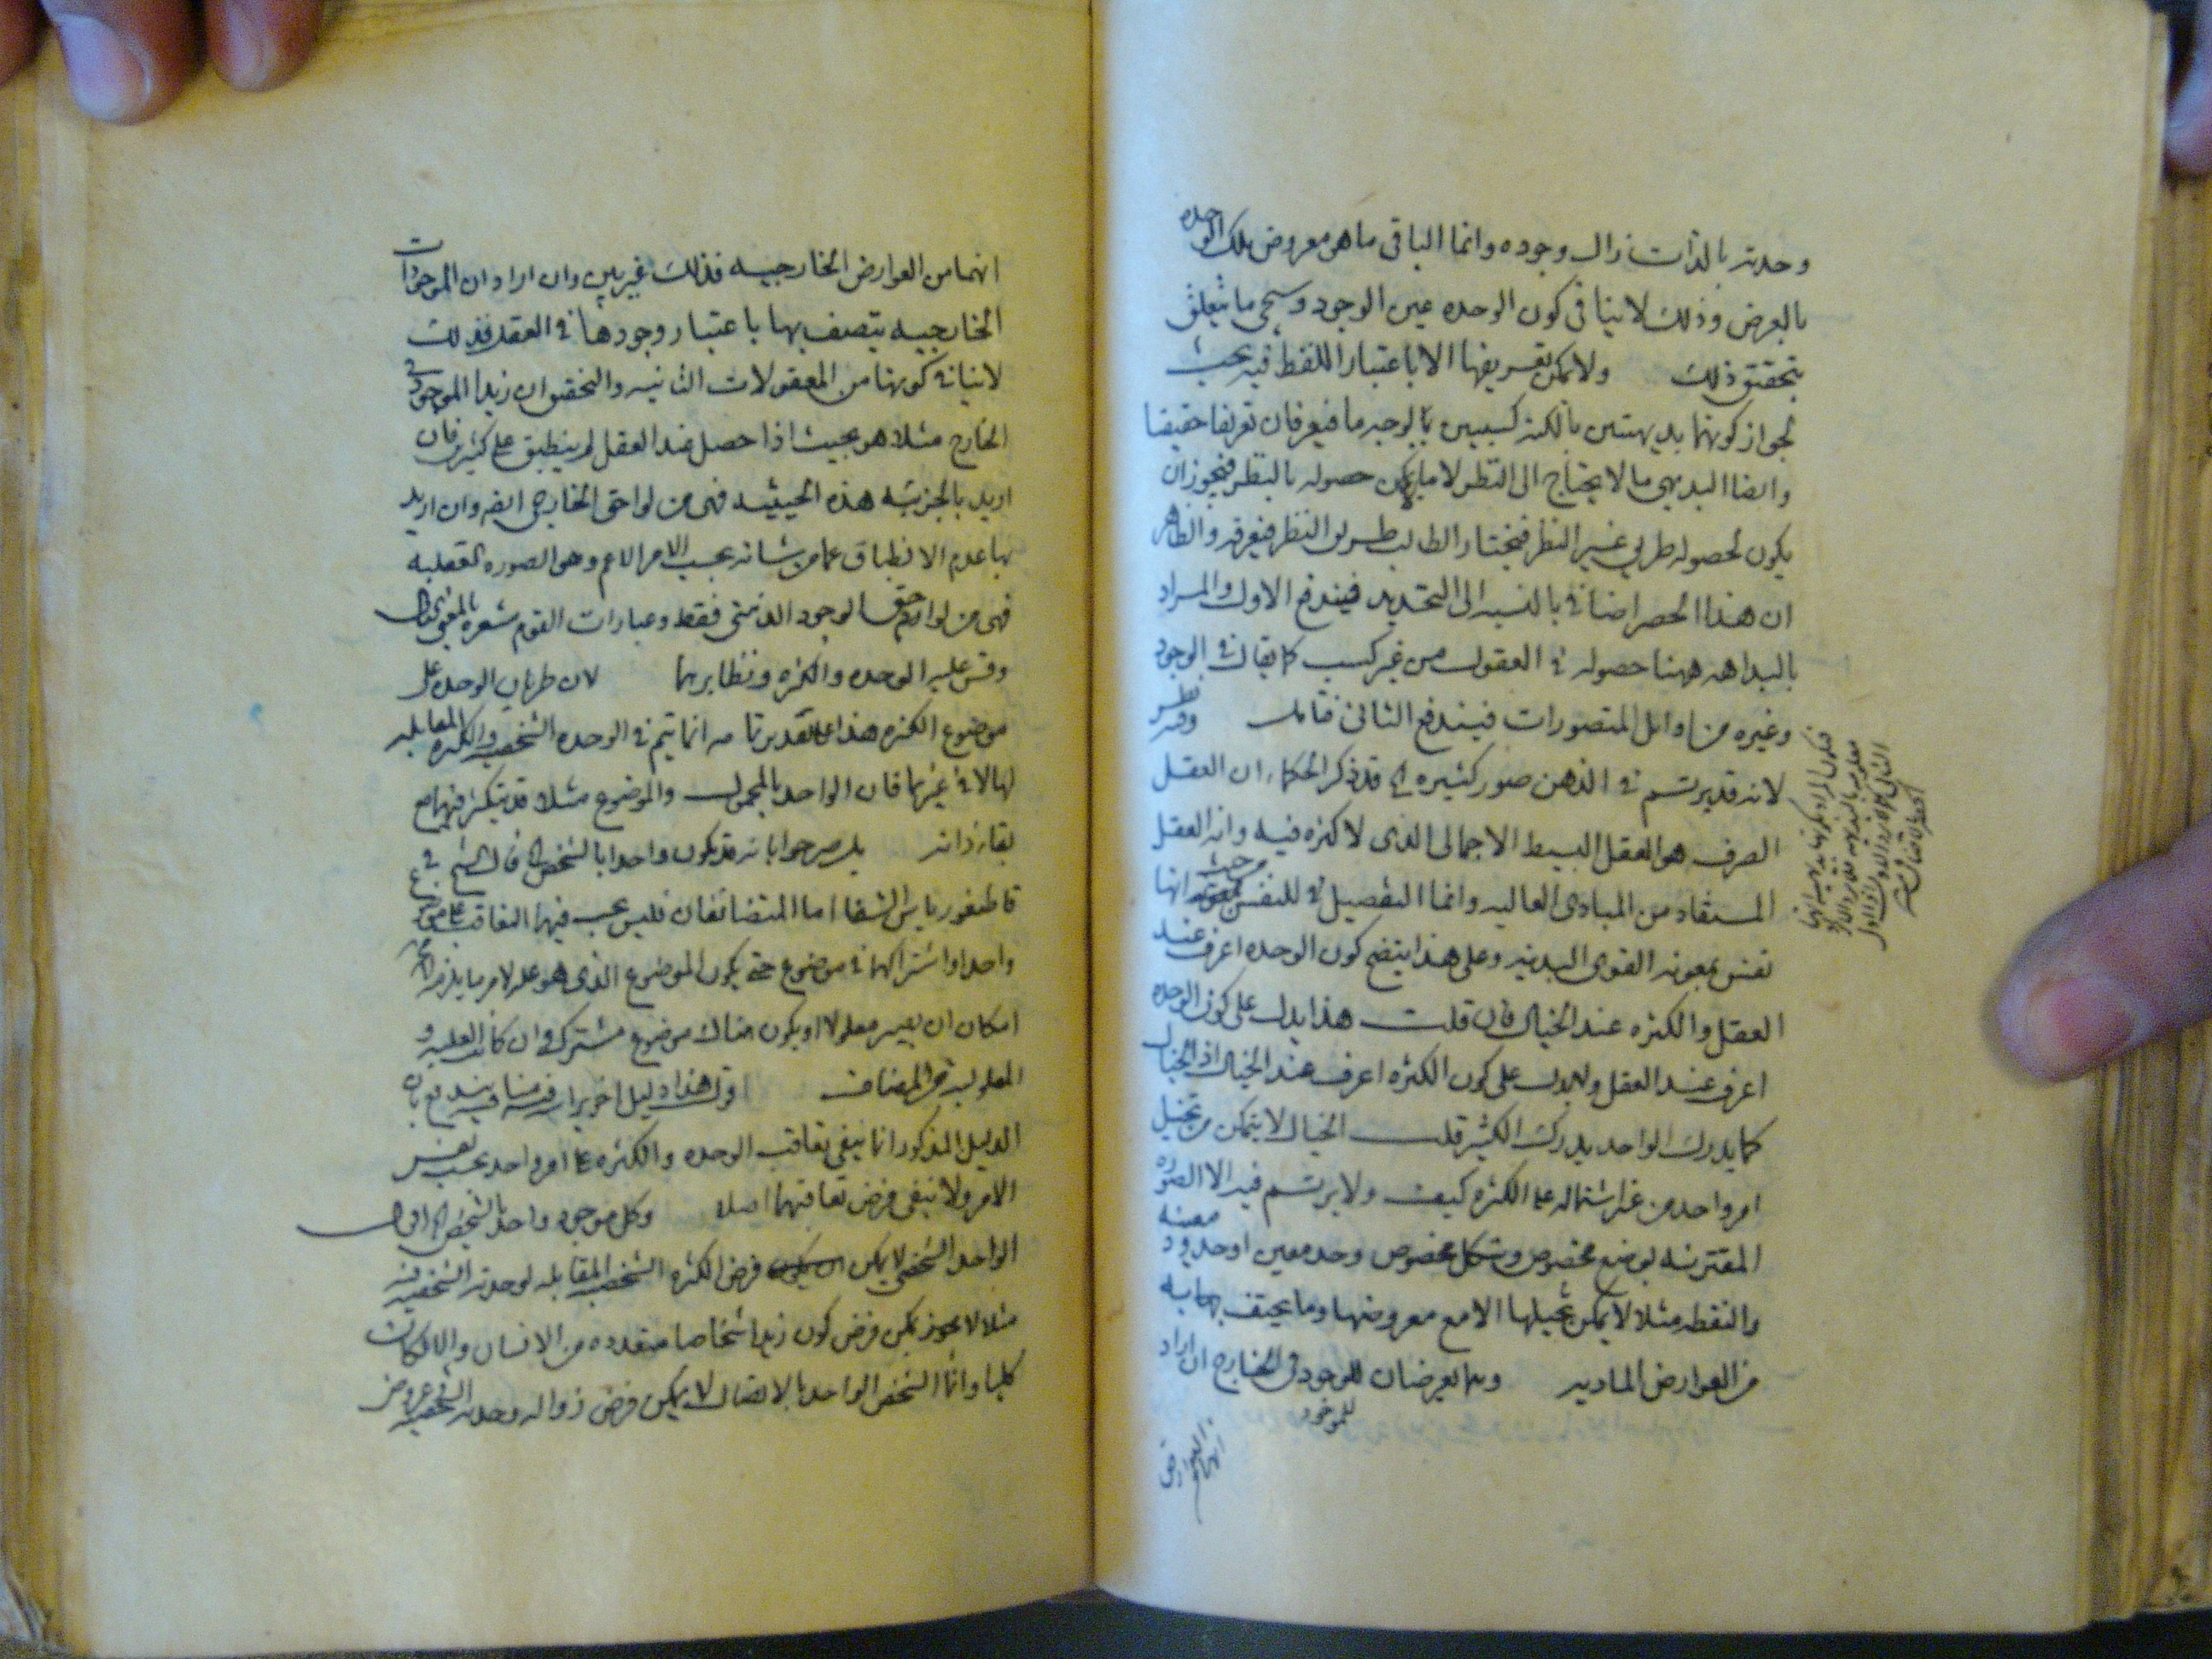 وحدته بالذات زال وجوده وانما الباقى ما هو معروض تلك الوحده
بالعرض وذلك لا ينافى كون الوحده عين الوجود وسيجى ما يتعلق
بتحقيق ذلك ولا يمكن تعريفها الا باعتبار اللفظ فيه بحث
لجواز كونهما بديهيتين بالكنه كسبيين بالوجه ما فيعرفان تعريفا حقيقيا
وايضا البديهى ما لا يحتاج الى النظر لا ما لا يمكن حصوله بالنظر فيجوز ان
يكون لحصوله طريق غير النظر فيختار الطالب طريق النظر فيعرفه والظاهر
ان هذا الحصر اضافى بالنسبه الى التحديد فيندفع الاول والمراد
بالبداهه ههنا حصوله فى العقول من غير كسب كما يقال فى الوجود
وغيره من اوائل المتصورات فيندفع الثانى فتامل وفيه نظر
لانه قد يرتسم فى الذهن صور كثيره الخ قد ذكر الحكماء ان العقل
الصرف هو العقل البسيط الاجمالى الذى لا كثره فيه وانه العقل
المستفاد من المبادى العاليه وانما التفصيل فى للنفس من حيث انها
نفس بمعونه القوى البدنيه وعلى هذا يتضح كون الوحده اعرف عند
العقل والكثره عند الخيال فان قلت هذا يدل على كون الوحده
اعرف عند العقل ولا يدل على كون الكثره اعرف عند الخيال اذ الخيال
كما يدرك الواحد يدرك الكثير قلت الخيال لا يتمكن من تخيل
امر واحد من غير اشتماله على الكثره كيف ولا يرتسم فيه الا الصوره
المقترنه بوضع مخصوص وشكل مخصوص وحد معين او حدود معينه
والنقطه مثلا لا يمكن تخيلها الا مع معروضها وما يحتف بها به
من العوارض الماديه وهما يعرضان للموجود فى الخارج ان اراد
للموجود
انهما من العوارض
انهما من العوارض الخارجيه فذلك غير بين وان اراد ان الموجودات
الخارجيه يتصف بها باعتبار وجودها فى العقل فذلك
لا ينافى كونها من المعقولات الثانيه والتحقيق ان زيدا الموجود فى
الخارج مثلا هو بحيث اذا حصل عند العقل لم ينطبق على كثيرين فان
اريد بالجزئيه هذه الحيثيه فهى من لواحق الخارجى ايضا وان اريد
بها عدم الانطباق عما من شانه بحسب الامر الاعم وهى الصوره العقليه
فهى من لواحق الوجود الذهنى فقط وعبارات القوم مشعره بالمعنى
وقس عليه الوحده والكثره ونظايرهما لان طريان الوحده على
موضوع الكثره هذا على تقدير تمامه انما يتم فى الوحده الشخصيه والكثره المقابله
لها لا فى غيرها فان الواحد بالمحمول والموضوع مثلا قد يتكثر فيهما مع
بقاء ذاته بل صرحوا بانه قد يكون واحدا بالشخص الخ قال الشيخ فى
قاطيغورياس الشفا اما المتضائفان فليس يجب فيهما التعاقب على موضوع
واحد او اشتراكهما فى موضوع حتى يكون الموضوع الذى هو عله لامر ما يلزمه
امكان ان يصير معلولا او يكون هناك موضوع مشترك وان كانت العليه و
المعلوليه من المضاف اقول هذا دليل اخر
الدليل المذكور انما ينفى تعاقب الوحده والكثره على امر واحد بحسب نفس
الامر ولا ينفى فرض تعاقبهما اصلا وكل موجود واحد بالشخص الخ اقول
الواحد الشخصى لا يمكن فرض الكثره الشخصيه المقابله لوحدته الشخصيه
مثلا لا يمكن فرض كون زيد اشخاصا متعدده من الانسان والا لكان
كليا واما الشخص الواحد بالاتصال لا يمكن فرض زوال وحدته الشخصيه